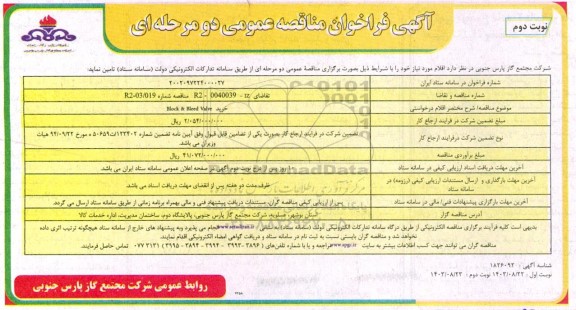 آگهی فراخوان مناقصه عمومی دو مرحله ای
نوبت دوم
شرکت مجتمع گاز پارس جنوبی در نظر دارد اقلام مورد نیاز خود را با شرایط ذیل بصورت برگزاری مناقصه عمومی دو مرحله ای از طریق سامانه تدارکات الکترونیکی دولت (سامانه ستاد) تامین نماید:
شماره فراخوان در سامانه ستاد ایران
شماره مناقصه و تقاضا تقاضای R2- 0040039 مناقصه شماره R2-03/019
موضوع مناقصه/ شرح مختصر اقلام درخواستی خرید Block & Bleed Valve
مبلغ تضمین شرکت در فرایند ارجاع کار ۲/۰۵۴/۰۰۰/۰۰۰ ریال
نوع تضمین شرکت در فرایند ارجاع کار تضمین شرکت در فرایند ارجاع کار بصورت یکی از تضامین قابل قبول وفق آیین نامه تضمین شماره ۱۲۳۴۰۲/ت۵۰۶۵۹ه مورخ ۹۴/۰۹/۲۲ هیات وزیران می باشد
مبلغ برآوردی مناقصه ۴۱/۰۷۲/۰۰۰/۰۰۰ ریال
آخرین مهلت دریافت اسناد ارزیابی کیفی در سامانه ستاد روز پس از درج نوبت دوم آگهی در صفحه اعلان عمومی سامانه ستاد ایران می باشد.
آخرین مهلت بارگذاری و ارسال مستندات ارزیابی کیفی (رزومه) در سامانه ستاد ظرف مدت دو هفته پس از انقضای مهلت دریافت اسناد می باشد.
آخرین مهلت بارگذاری پیشنهادات فنی/ مالی در سامانه ستاد پس از ارزیابی کیفی مناقصه گران، مستندات دریافت پیشنهاد فنی و مالی بهمراه برنامه زمانی از طریق سامانه ستاد ارسال می گردد.
آدرس مناقصه گزار استان بوشهر، عسلویه، شرکت مجتمع گاز پارس جنوبی، پالایشگاه دوم، ساختمان مدیریت، اداره خدمات کالا
بدیهی است کلیه فرآیند برگزاری مناقصه الکترونیکی از طریق درگاه سامانه تدارکات الکترونیکی دولت (سامانه ستاد) به نشانی www.setadiran.ir انجام می پذیرد و به پیشنهاد های خارج از سامانه ستاد هیچگونه ترتیب اثری داده
نخواهد شد و مناقصه گران بایستی نسبت به ثبت نام در سامانه ستاد و دریافت گواهی امضاء الکترونیکی اقدام نمایند.
مناقصه گران می توانند جهت کسب اطلاعات بیشتر به سایت www.spgc.ir مراجعه و یا با شماره تلفن های ( ۳۸۹۶ - ۳۹۹۳ - ۳۸۹۴ - ۳۹۹۵ ) ۳۱۳۱ ۰۷۷ تماس حاصل فرمایند.
شناسه آگهی : ۱۸۲۶۰۹۲
نوبت اول : ۱۴۰۳/۰۸/۲۲ نوبت دوم : ۱۴۰۳/۰۸/۲۳
روابط عمومی شرکت مجتمع گاز پارس جنوبی